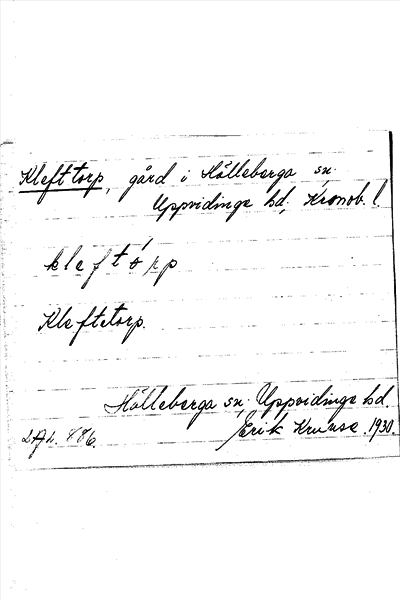 Klefttorp, gård i Hälleberga sn.
Uppvidinge hd, Kronob. l.
kleftórp
Kleftetorp.
Hälleberga sn. Uppvidinge hd.
Erik Kruuse. 1930.
LAL. 886.